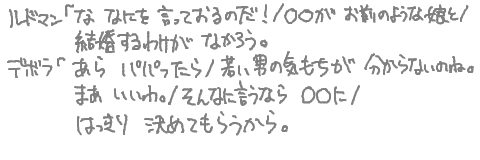 ルドマン「な なにを 言っておるのだ！/○○が お前のような娘と/
結婚するわけが なかろう。
デボラ「あら パパったら/若い男の気もちが 分からないのね。
まあ いいわ。/そんなに言うなら ○○に/
はっきり 決めてもらうから。